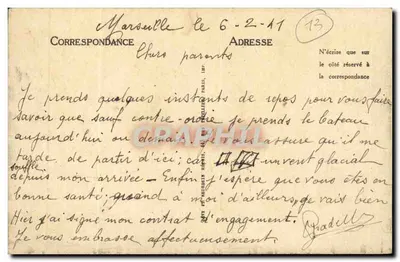 Marseille le 6-2-41
13
CORRESPONDANCE
ADRESSE
Chers parents
N'écrire que sur
le côté réservé à
la correspondance
Je prends quelques instants de repos pour vous faire
savoir que sauf contre-ordre je prends le bateau
aujourd'hui ou demain. Je vous assure qu'il me
tarde de partir d'ici; car un vent glacial
souffle
depuis mon arrivée - Enfin j'espère que vous êtes en
bonne santé; quand à moi d'ailleurs, je vais bien
Hier j'ai signé mon contrat d'engagement.
Je vous embrasse affectueusement.